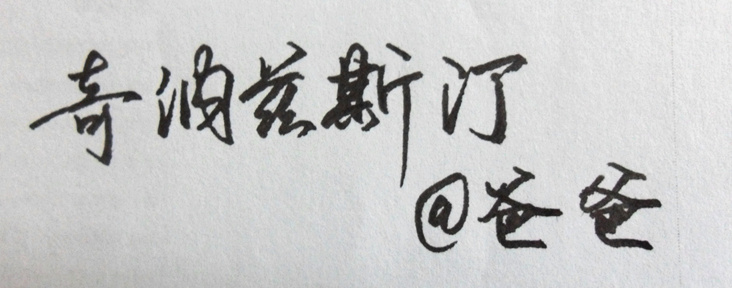 奇洵兹斯汀
@爸爸